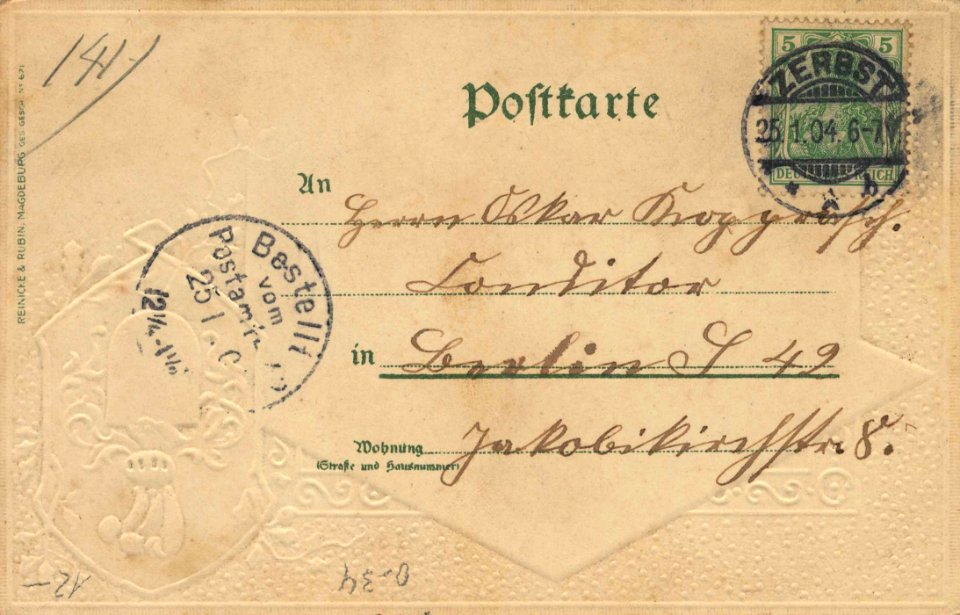 141
REINICKE & RUBIN, MAGDEBURG GES. GESCH. No 621
Postkarte
5 5
DEUTSCHES REICH
ZERBST
25.1.04. 6-7V
* b
An Herrn Oskar
Conditor
in Berlin S 42
Wohnung Jakobikirchstr. 8.
(Straße und Hausnummer)
Bestellt
vom
Postamte
25 1
12¼-1½
12-
0-34